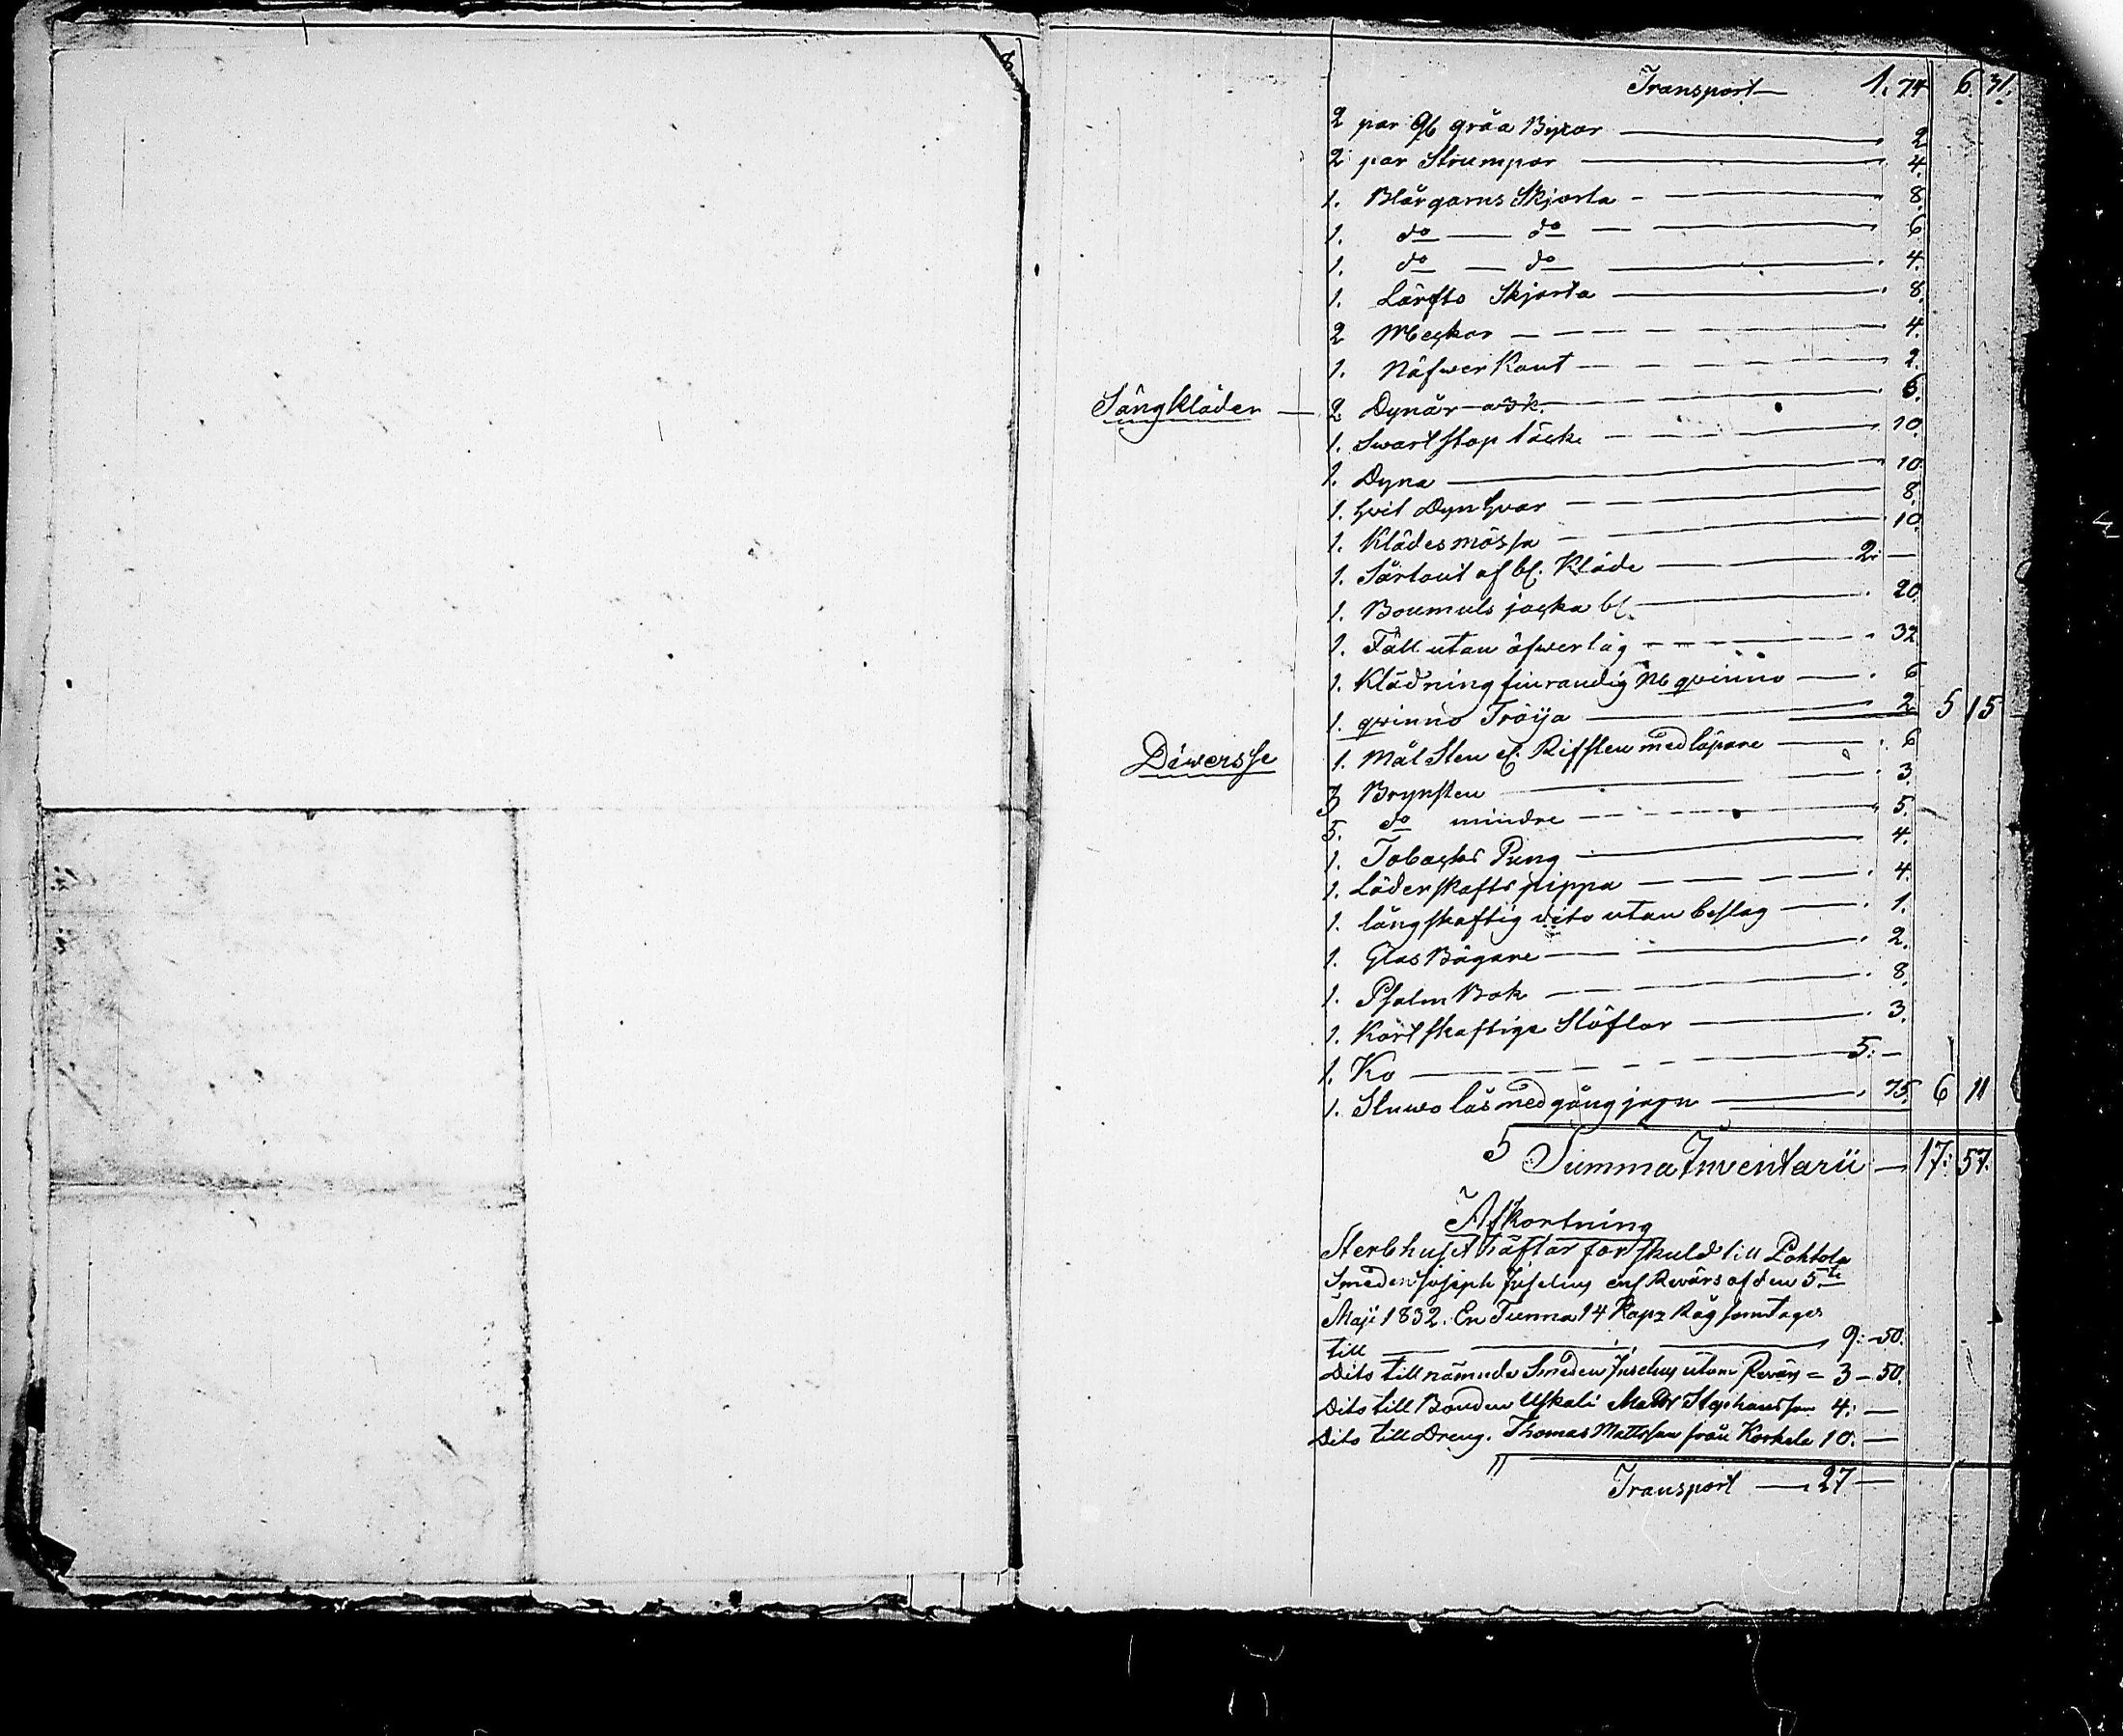 Transport — 1. 74 6. 31.
2 par gråa Byxor — 2
2 par Strumpor — 4.
1. Blårgarns Skjorta — 8.
1. do — do — 6
1. do — do — 4.
1. Lärfts Skjorta — 8.
2 — 4.
1. Näfwer Kont — 2.
Sängkläder — 2 Dynår — 6.
1. Swart täcke — 10.
1. Dyna — 10.
1. hvit Dynhvar — 8.
1. Klädesmössa — 10.
1. Sürtout af bl. Kläde — 2: —
1. Boumuls jacka bl. — 20.
1. Fäll utan öfwerlag — 32
1. Klädning finrandig qvinno — 6
1. qwinno Tröija — 2 5 15
Diwersse 1. Mål Sten el. Rifsten med löpare — 6
3 Brynsten — 3.
5. do mindre — 5.
1. Tobacks Pung — 4.
1. Läderskafts pippa — 4.
1. långskaftig dito utan beslag — 1.
1. Glas Bägare — 2.
1. Psalm Bok — 8.
1. Kortskaftiga Stöflor — 3.
1. Ko — 5: —
1. Stuwo lås med gångjern — 75. 6 11
5 Summa Inventarii — 17: 57.
Afkortning
Sterbhuset häftar for skuld till Pohtola
Smeden Joseph Juselius enl Revers af den 5te
Maji 1832. En Tunna 14 Kapr Råg som tages
till — 9: 50.
Dito till nämnde Smeden Juselius utom Revers = 3 — 50.
Dito till Bonden Uskali Matts Stephansson 4: —
Dito till Dreng. Thomas Mattsson från Korkela 10. —
Transport — 27 —